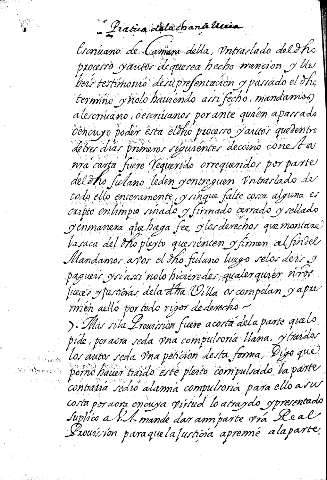 Practica de la Chancilleria
Escrivano de Camara della, Un traslado del dho
processo y autos de que sea hecho mencion, y lle
beis testimonio de su presentacion y passado el dho
termino y no lo haviendo assi fecho, mandamos
al escrivano, o escrivanos por ante quien a passado
o en cuyo poder esta el dho processo, y autos que dentro
de tres dias primeros siguientes de como con esta
nra carta fuere requerido o requeridos por parte
del dho fulano le den y entreguen Un traslado de
todo ello enteramente y sin que falte cossa alguna es
cripto en limpio sinado y firmado cerrado y sellado
y en manera que haga fee, y los derechos que montare
la saca del dho pleyto que sienten y firmen al fin del
Mandamos a vos el dho fulano luego se los deis, y
pagueis y si assi no lo hicieredes, qualesquier nros
Jueces y Justicias de la dha Villa os compelan y apre
mien a ello por todo rigor de derecho
7. Mas si la Provision fuere a costa de la parte que lo
pide, por aora se da una compulsoria llana, y traidos
los autos se da una peticion desta forma, Digo que
por no haver traido este pleyto compulsado, la parte
contraria se dio a la mia compulsoria para ello a su
costa por aora en cuya virtud lo a traydo, y presentado
suplico a V.A. mande dar a mi parte vra Real
Provision para que la Justicia apremie a la parte